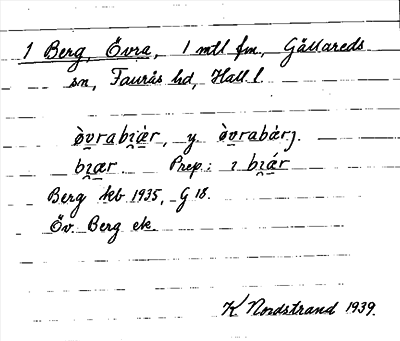 1 Berg, Övra, 1 mtl fm., Gällareds
sn, Faurås hd, Hall. l.
òvrabi̯ær, y. òvrabærj.
bi̯ær. Prep.: ı bi̯ær
Berg kb 1935, G 18.
Öv. Berg ek.
K Nordstrand 1939.